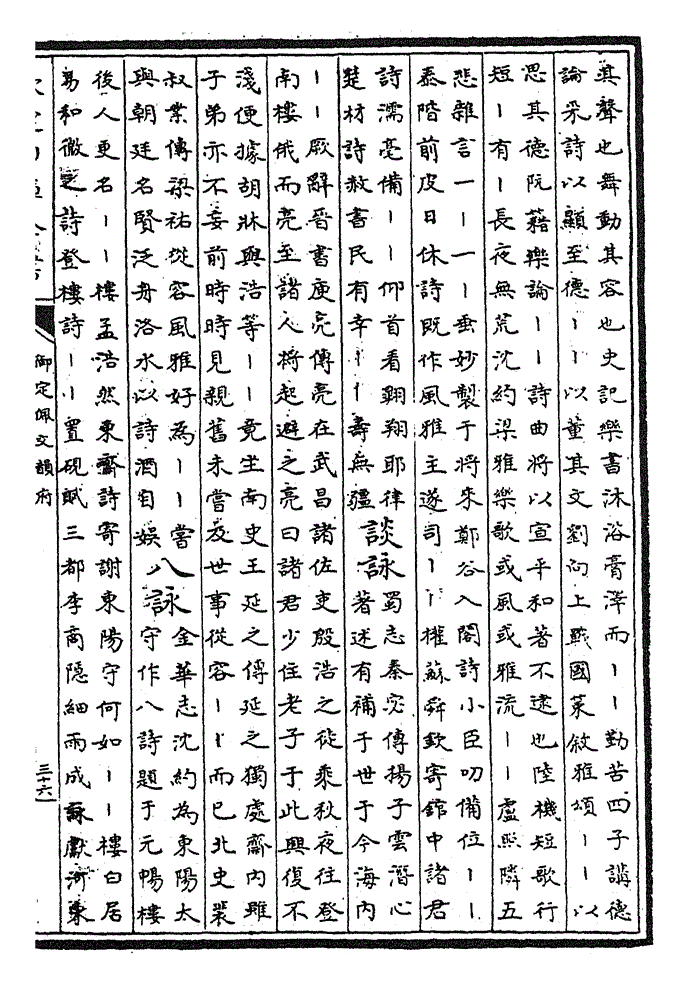 其聲也舞動其容也史記樂書沐浴膏澤而丨丨勤苦四子講德
論采詩以顯至德丨丨以董其文劉向上戰國策敘雅頌丨丨以
思其德阮籍樂論丨丨詩曲將以宣平和著不逮也陸機短歌行
短丨有丨長夜無荒沈約梁雅樂歌或風或雅流丨丨盧照隣五
悲雜言一丨一丨垂妙製于將來鄭谷入閣詩小臣叨備位丨丨
泰階前皮日休詩既作風雅主遂司丨丨權蘇舜欽寄館中諸君
詩濡毫備丨丨仰首看翺翔耶律
楚材詩赦書民有幸丨丨壽無疆
談詠
蜀志秦宓傳揚子雲潛心
著述有補于世于今海内
丨丨厥辭晉書庾亮傳亮在武昌諸佐吏殷浩之徒乘秋夜往登
南樓俄而亮至諸人將起避之亮曰諸君少住老子于此興復不
淺便據胡牀與浩等丨丨竟坐南史王延之傳延之獨處齋内雖
子弟亦不妄前時時見親舊未嘗及世事從容丨丨而已北史裴
叔業傳梁祐從容風雅好為丨丨嘗
與朝廷名賢泛舟洛水以詩酒自娛
八詠
金華志沈約為東陽太
守作八詩題于元暢樓
後人更名丨丨樓孟浩然東齋詩寄謝東陽守何如丨丨樓白居
易和微之詩登樓詩丨丨置硯賦三都李商隱細雨成詠獻河東
御定佩文韻府
三十六